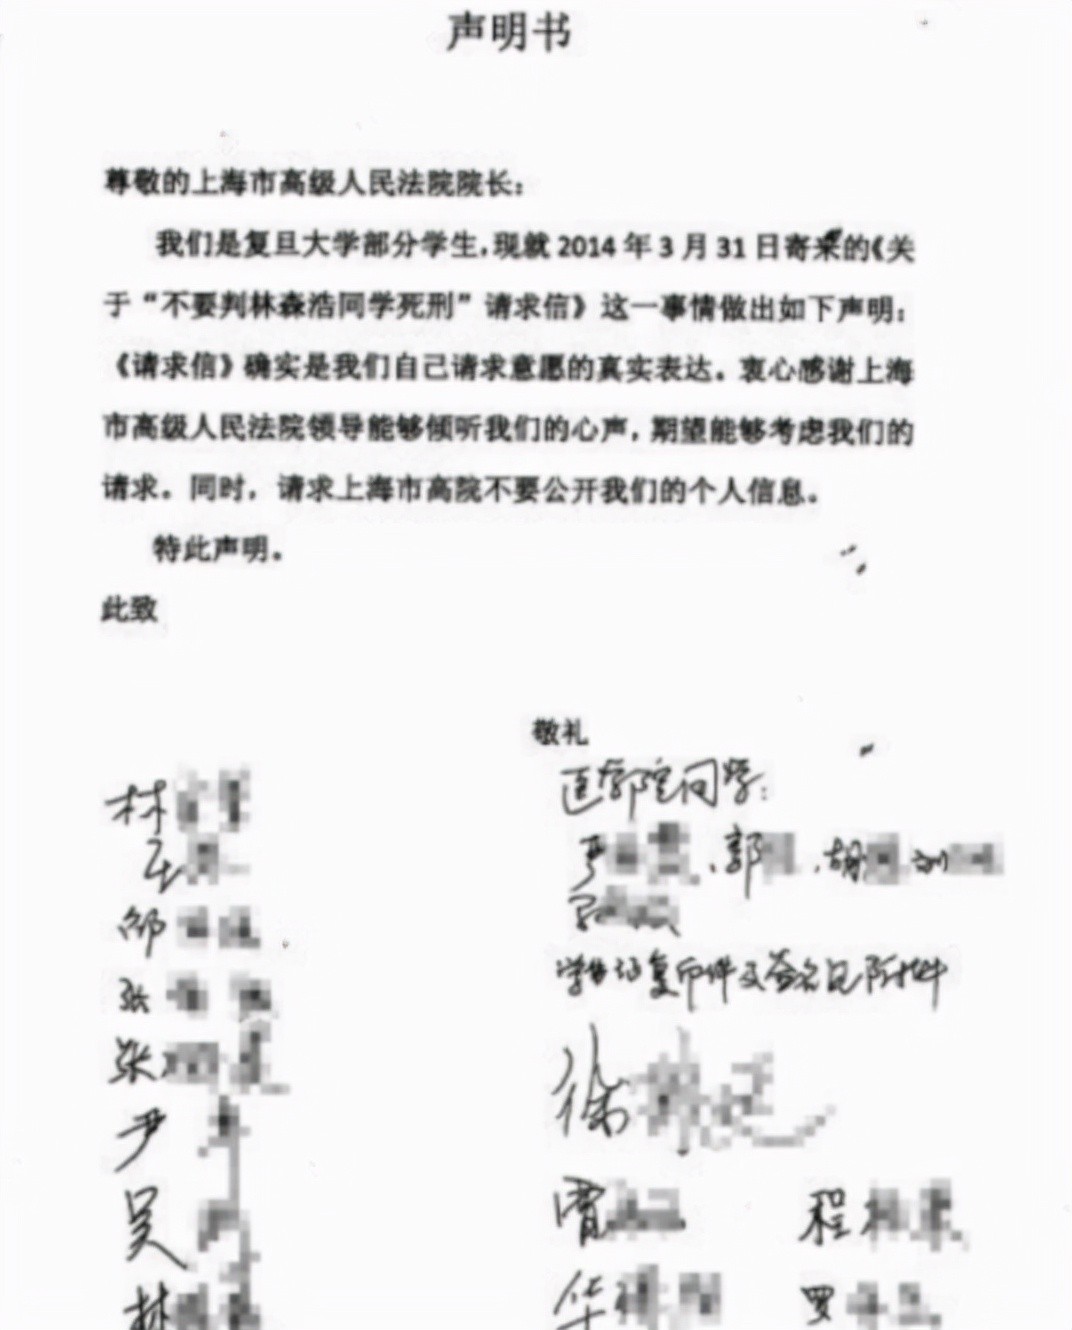 声明书
尊敬的上海市高级人民法院院长：
我们是复旦大学部分学生，现就 2014 年 3 月 31 日寄来的《关
于“不要判林森浩同学死刑”请求信》这一事情做出如下声明：
《请求信》确实是我们自己请求意愿的真实表达。衷心感谢上海
市高级人民法院领导能够倾听我们的心声，期望能够考虑我们的
请求。同时，请求上海市高院不要公开我们的个人信息。
特此声明。
此致
敬礼
医学院同学：
林
严 、郭 、胡 刘
邵
学生证复印件及签名见附件
张
张
徐
尹
吴
曹 程
林
华 罗